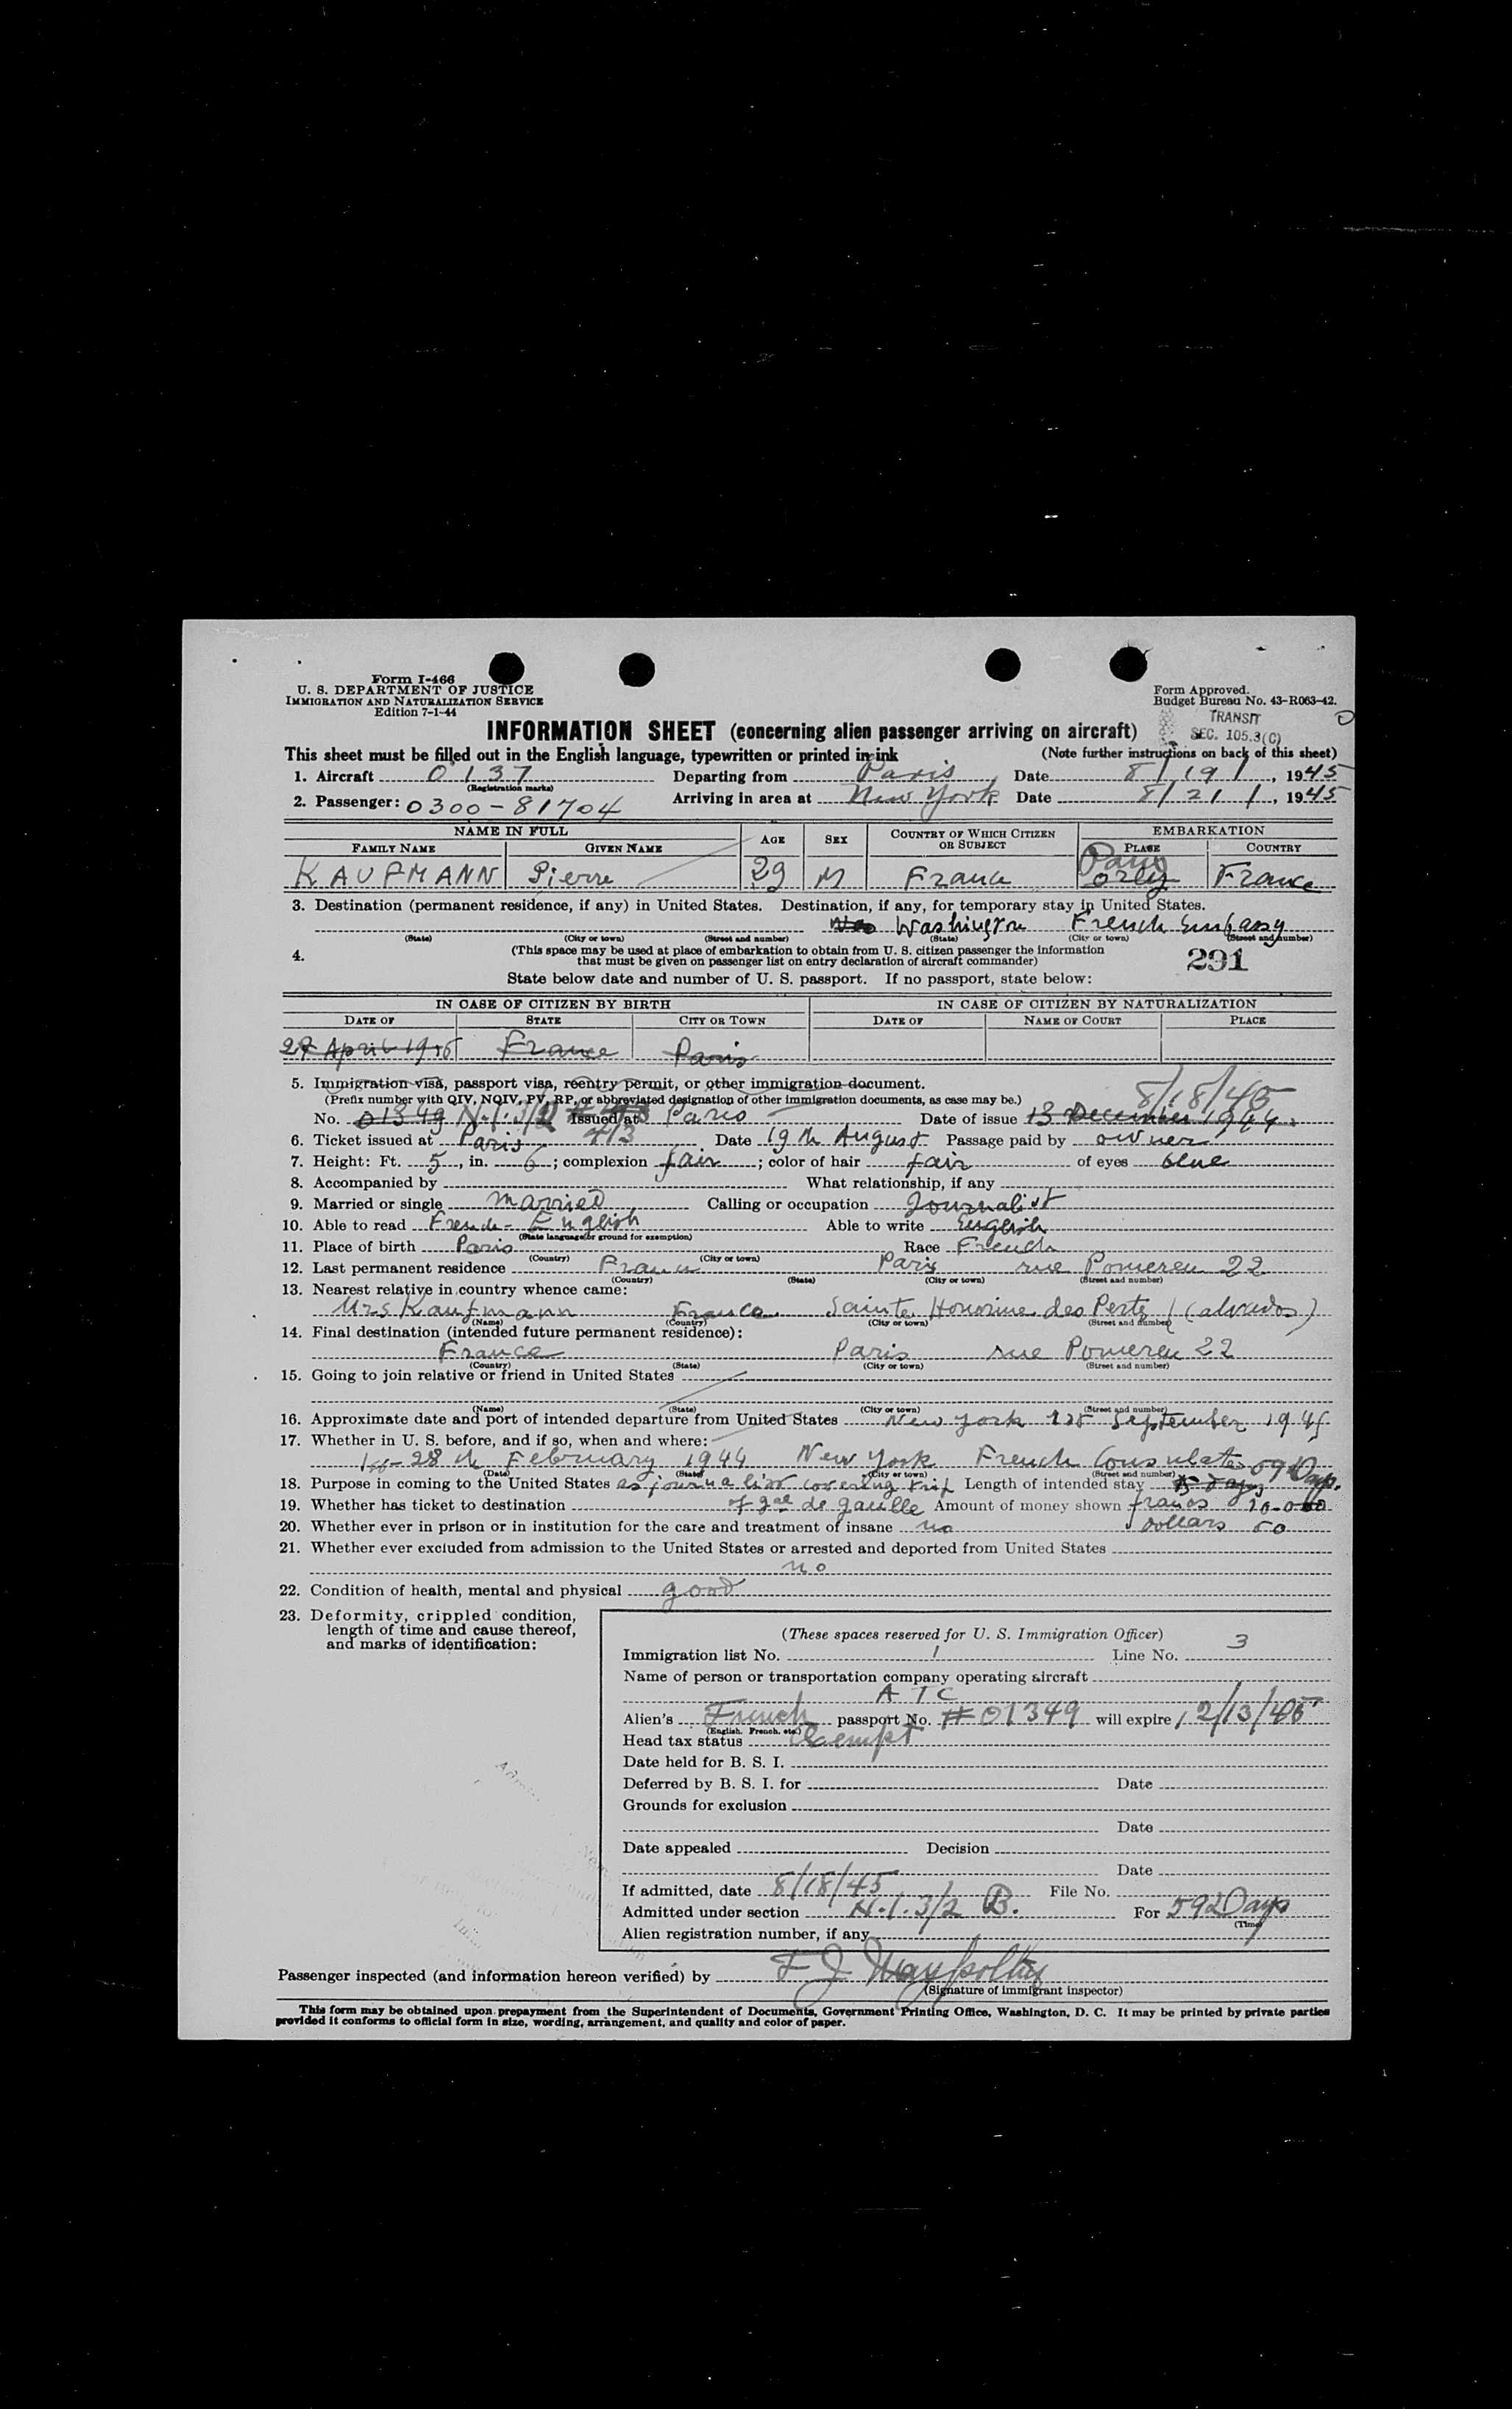 Form I-466
U. S. DEPARTMENT OF JUSTICE
IMMIGRATION AND NATURALIZATION SERVICE
Edition 7-1-44
Form Approved.
Budget Bureau No. 43-R063-42.
TRANSIT
SEC. 105.3(C)
INFORMATION SHEET (concerning alien passenger arriving on aircraft)
This sheet must be filled out in the English language, typewritten or printed in ink (Note further instructions on back of this sheet)
1. Aircraft 0137 Departing from Paris Date 8/19/, 1945
(Registration marks)
2. Passenger: 0300-81704 Arriving in area at New York Date 8/21/, 1945
NAME IN FULL AGE SEX COUNTRY OF WHICH CITIZEN OR SUBJECT EMBARKATION
FAMILY NAME GIVEN NAME PLACE COUNTRY
KAUFMANN Pierre 29 M France Paris Orly France
3. Destination (permanent residence, if any) in United States. Destination, if any, for temporary stay in United States.
Washington French Embassy
(State) (City or town) (Street and number) (State) (City or town) (Street and number)
4. (This space may be used at place of embarkation to obtain from U. S. citizen passenger the information
that must be given on passenger list on entry declaration of aircraft commander)
291
State below date and number of U. S. passport. If no passport, state below:
IN CASE OF CITIZEN BY BIRTH IN CASE OF CITIZEN BY NATURALIZATION
DATE OF STATE CITY OR TOWN DATE OF NAME OF COURT PLACE
27 April 1916 France Paris
5. Immigration visa, passport visa, reentry permit, or other immigration document.
(Prefix number with QIV, NQIV, PV, RP, or abbreviated designation of other immigration documents, as case may be.)
8/18/45
No. 01349 N.I. 3/2 413 Issued at Paris Date of issue 13 December 1944
6. Ticket issued at Paris Date 19th August Passage paid by owner
7. Height: Ft. 5, in. 6; complexion fair; color of hair fair of eyes blue
8. Accompanied by What relationship, if any
9. Married or single married Calling or occupation Journalist
10. Able to read French - English Able to write English
(State language or ground for exemption)
11. Place of birth Paris Race French
(Country) (City or town)
12. Last permanent residence France Paris rue Pomereu 22
(Country) (State) (City or town) (Street and number)
13. Nearest relative in country whence came:
Mrs Kaufmann France Sainte Honorine des Pertes (Calvados)
(Name) (Country) (City or town) (Street and number)
14. Final destination (intended future permanent residence):
France Paris rue Pomereu 22
(Country) (State) (City or town) (Street and number)
15. Going to join relative or friend in United States
(Name) (State) (City or town) (Street and number)
16. Approximate date and port of intended departure from United States New York September 1945
17. Whether in U. S. before, and if so, when and where:
28th February 1944 New York French Consulate
(Date) (State) (City or town) (Street and number)
18. Purpose in coming to the United States as journalist covering trip Length of intended stay days
19. Whether has ticket to destination of gal de gaulle Amount of money shown francs 10.000
20. Whether ever in prison or in institution for the care and treatment of insane no dollars 50
21. Whether ever excluded from admission to the United States or arrested and deported from United States
no
22. Condition of health, mental and physical good
23. Deformity, crippled condition,
length of time and cause thereof,
and marks of identification:
(These spaces reserved for U. S. Immigration Officer)
Immigration list No. 1 Line No. 3
Name of person or transportation company operating aircraft
ATC
Alien's French passport No. #01349 will expire 12/13/46
(English, French, etc.)
Head tax status Exempt
Date held for B. S. I.
Deferred by B. S. I. for Date
Grounds for exclusion
Date
Date appealed Decision
Date
If admitted, date 8/18/45 File No.
Admitted under section N.I. 3/2 B. For Days
(Time)
Alien registration number, if any
Passenger inspected (and information hereon verified) by
(Signature of immigrant inspector)
This form may be obtained upon prepayment from the Superintendent of Documents, Government Printing Office, Washington, D. C. It may be printed by private parties
provided it conforms to official form in size, wording, arrangement, and quality and color of paper.